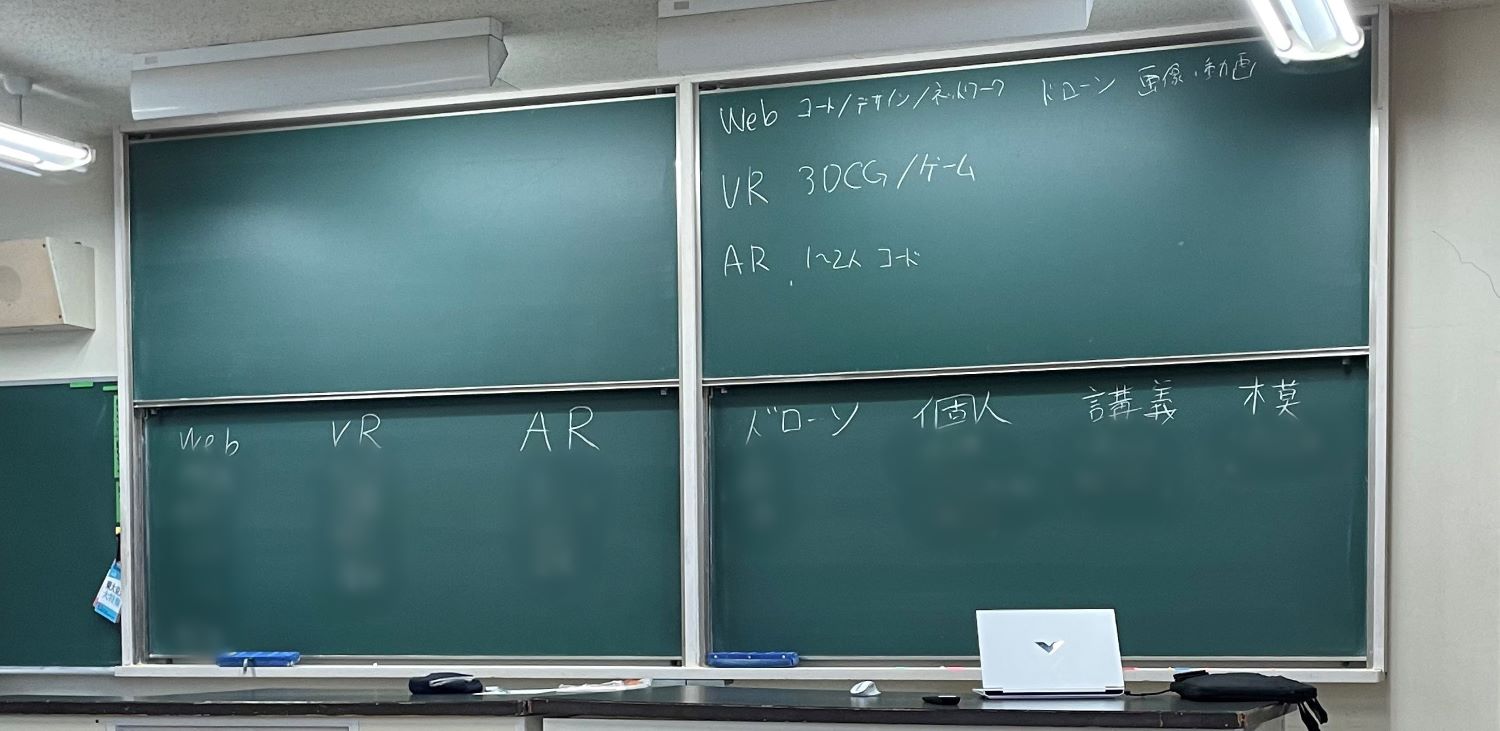 Web コード/デザイン/ネットワーク ドローン 画像・動画
VR 3DCG/ゲーム
AR 1~2人 コード
Web VR AR
ドローン 個人 講義 模